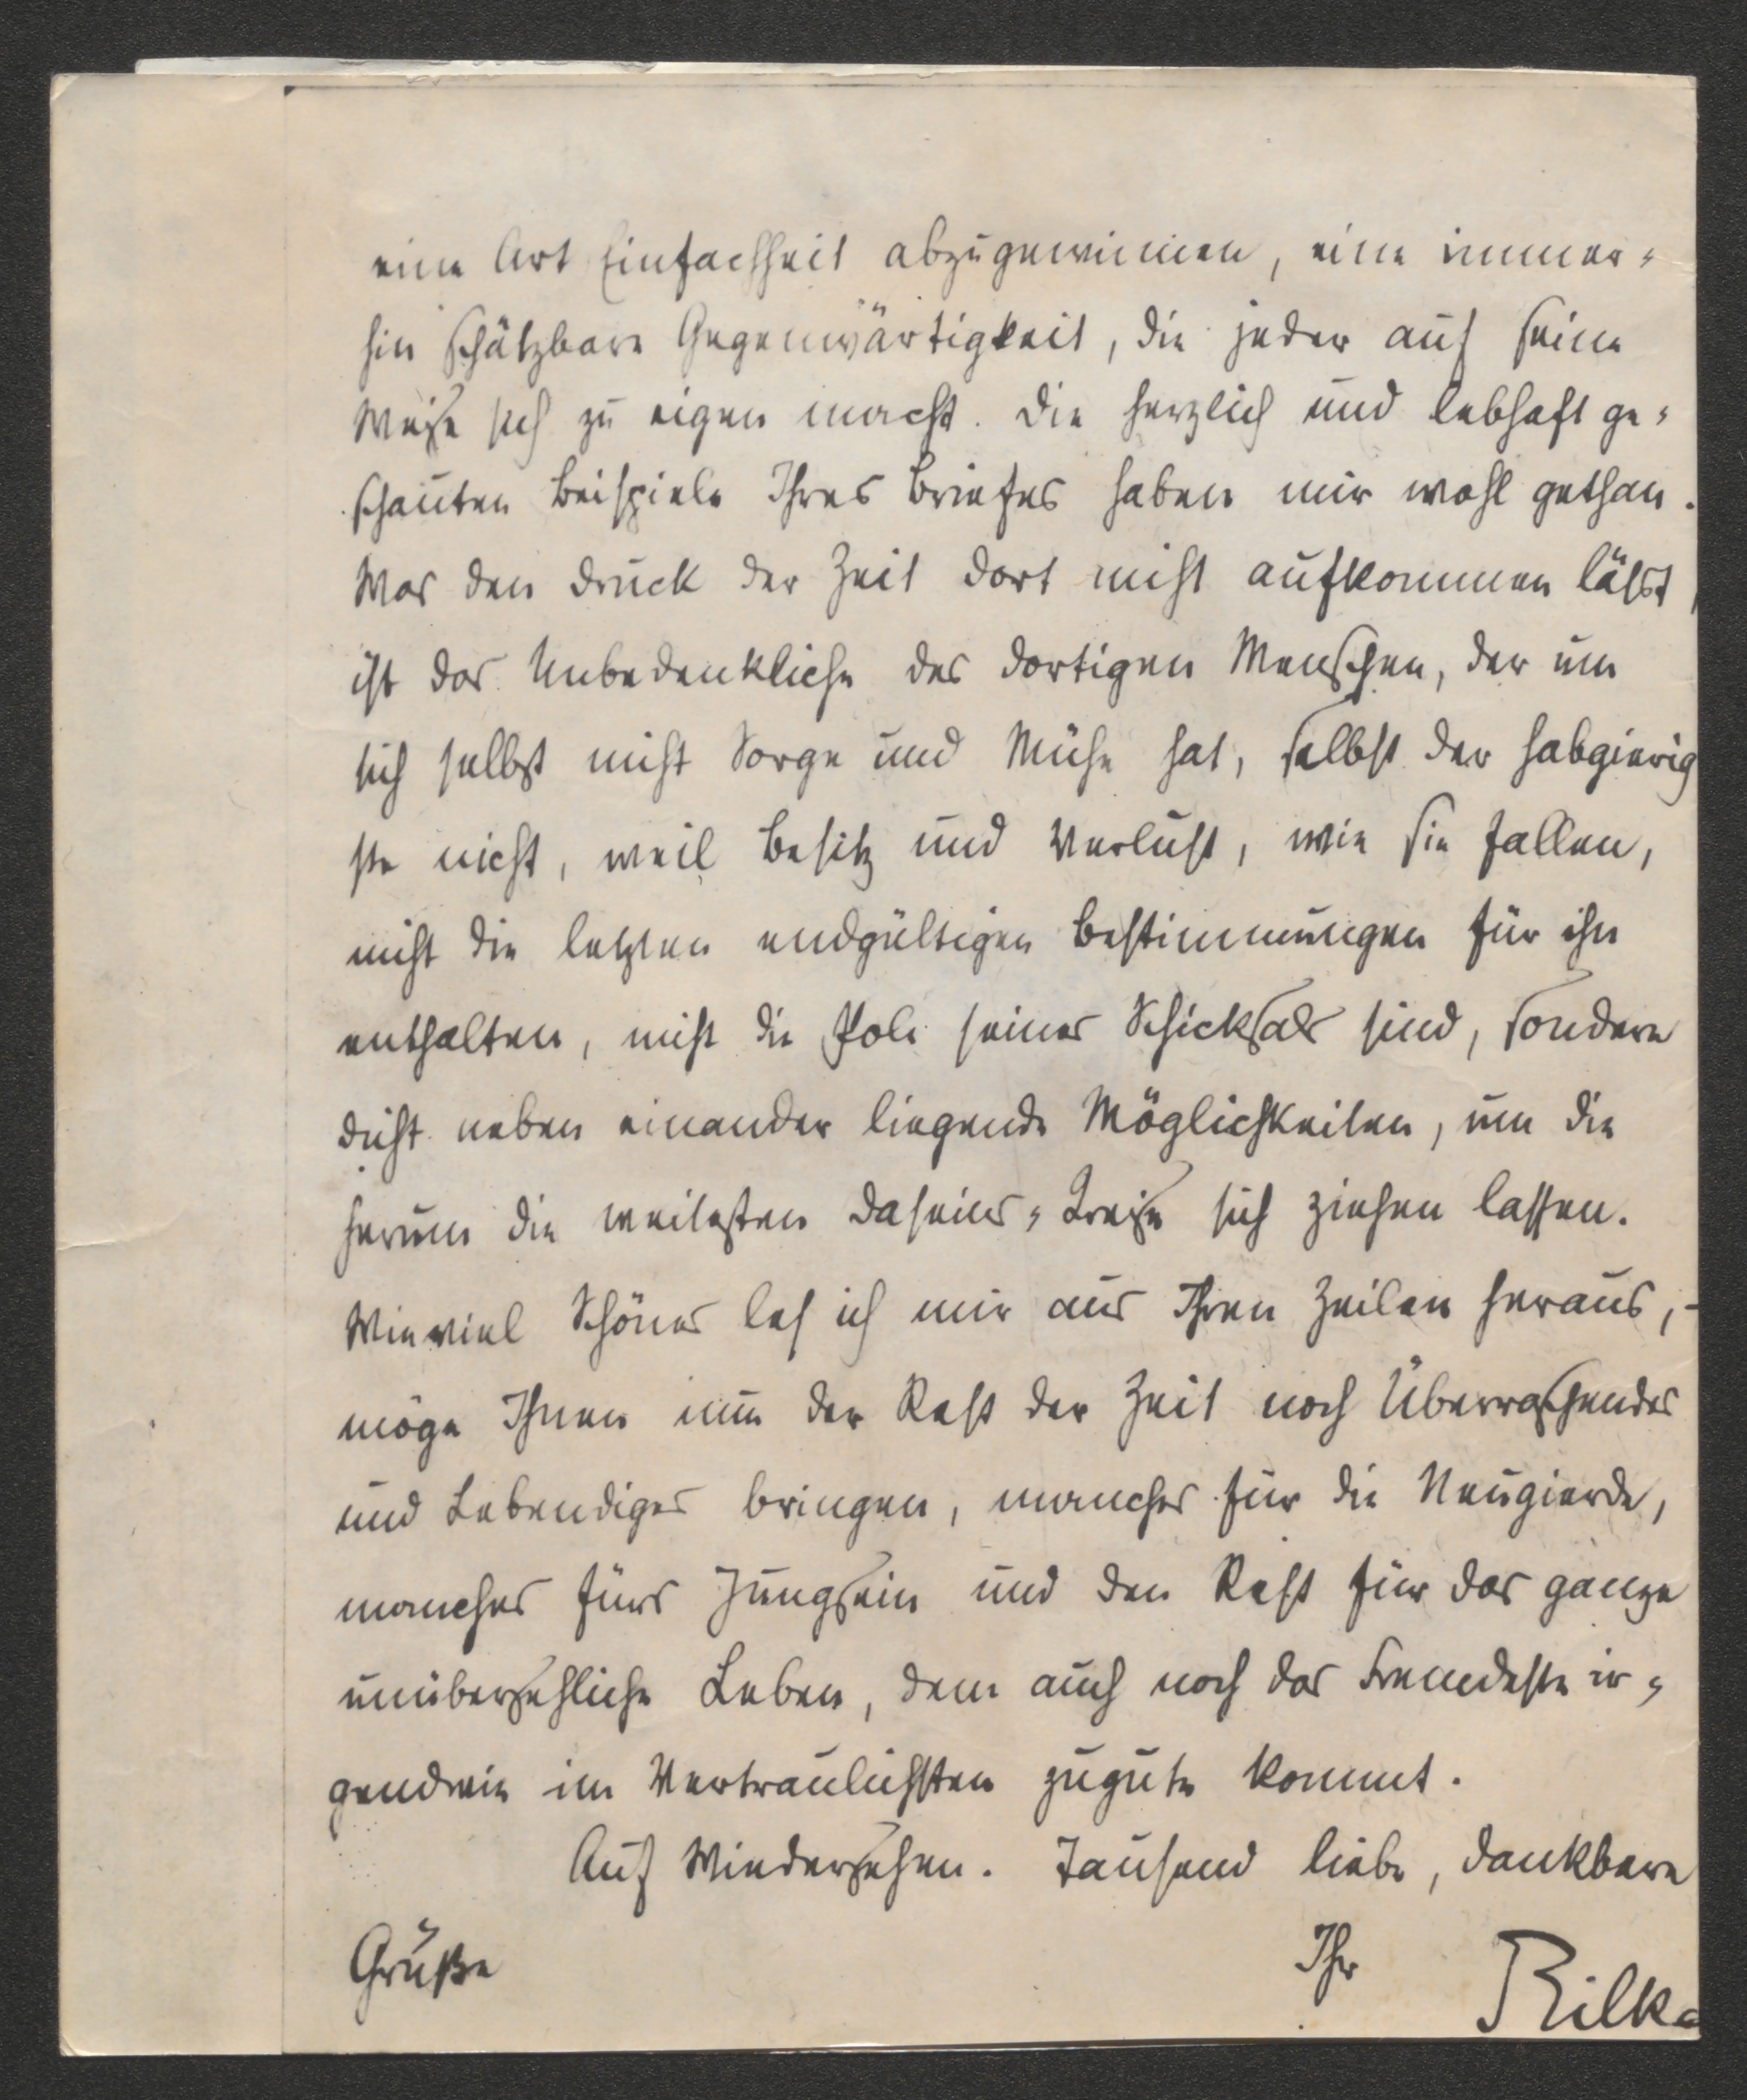 eine Art Einfachheit abzugewinnen, eine immer-
hin schätzbare Gegenwärtigkeit, die jeder auf seine
Weise sich zu eigen macht. Die herzlich und lebhaft ge-
schauten Beispiele Ihres Briefes haben mir wohl gethan.
Was den Druck der Zeit dort nicht aufkommen lässt,
ist das Unbedenkliche des dortigen Menschen, der um
sich selbst nicht Sorge und Mühe hat, selbst der habgierig
ste nicht, weil Besitz und Verlust, wie sie fallen,
nicht die letzten endgültigen Bestimmungen für ihn
enthalten, nicht die Pole seines Schicksals sind, sondern
dicht neben einander liegende Möglichkeiten, um die
herum die weitesten Daseins-Kreise sich ziehen lassen.
Wieviel Schönes les ich mir aus Ihren Zeilen heraus,-
möge Ihnen nun der Rest der Zeit noch Überraschendes
und Lebendiges bringen, manches für die Neugierde,
manches fürs Jungsein und den Rest für das ganze
unübersehliche Leben, dem auch noch das Fremdeste ir-
gendwie im Vertraulichsten zugute kommt.
Auf Wiedersehen. Tausend liebe, dankbare
Grüße Ihr Rilke